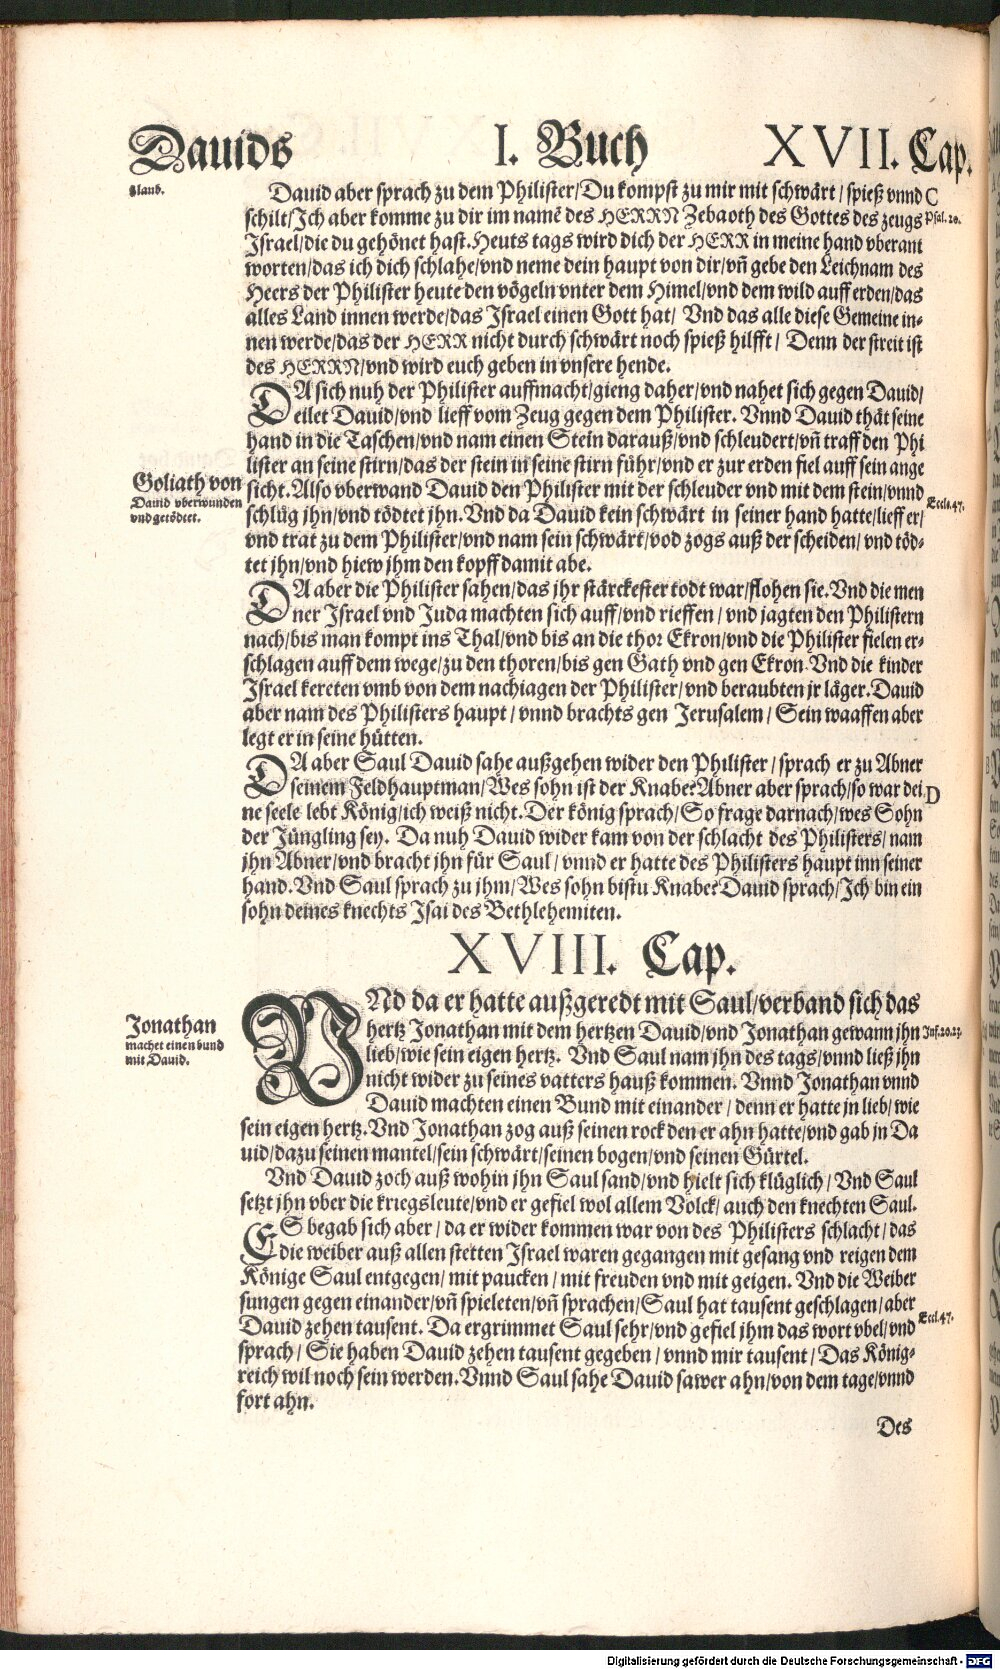 Dauids I. Buch XVII. Cap.
glaub.
Dauid aber sprach zu dem Philister/Du kompst zu mir mit schwärt/spieß vnnd C
schilt/Ich aber komme zu dir im namẽ des HERRN Zebaoth des Gottes des zeugs Psal. 20.
Israel/die du gehönet hast. Heuts tags wird dich der HERR in meine hand vberant
worten/das ich dich schlahe/vnd neme dein haupt von dir/vñ gebe den Leichnam des
Heers der Philister heute den vögeln vnter dem Himel/vnd dem wild auff erden/das
alles Land innen werde/das Israel einen Gott hat/ Vnd das alle diese Gemeine in-
nen werde/das der HERR nicht durch schwärt noch spieß hilfft/ Denn der streit ist
des HERRN/vnd wird euch geben in vnsere hende.
DA sich nuh der Philister auffmacht/gieng daher/vnd nahet sich gegen Dauid/
eilet Dauid/vnd lieff vom Zeug gegen dem Philister. Vnnd Dauid thät seine
hand in die Taschen/vnd nam einen Stein darauß/vnd schleudert/vñ traff den Phi
lister an seine stirn/das der stein in seine stirn führ/vnd er zur erden fiel auff sein ange
Goliath von
Dauid vberwunden
vnd getödtet.
sicht. Also vberwand Dauid den Philister mit der schleuder vnd mit dem stein/vnnd
schlüg jhn/vnd tödtet jhn. Vnd da Dauid kein schwärt in seiner hand hatte/lieff er/ Eccle. 47.
vnd trat zu dem Philister/vnd nam sein schwärt/vod zogs auß der scheiden/ vnd töd-
tet jhn/vnd hiew jhm den kopff damit abe.
DA aber die Philister sahen/das jhr stärckester todt war/flohen sie. Vnd die men
ner Israel vnd Juda machten sich auff/vnd rieffen/ vnd jagten den Philistern
nach/bis man kompt ins Thal/vnd bis an die thor Ekron/vnd die Philister fielen er-
schlagen auff dem wege/zu den thoren/bis gen Gath vnd gen Ekron. Vnd die kinder
Israel kereten vmb von dem nachiagen der Philister/vnd beraubten jr läger. Dauid
aber nam des Philisters haupt/ vnnd brachts gen Jerusalem/ Sein waaffen aber
legt er in seine hütten.
DA aber Saul Dauid sahe außgehen wider den Philister/ sprach er zu Abner
seinem Feldhauptman/Wes sohn ist der Knabe? Abner aber sprach/so war dei- D
ne seele lebt König/ich weiß nicht. Der könig sprach/ So frage darnach/wes Sohn
der Jüngling sey. Da nuh Dauid wider kam von der schlacht des Philisters/ nam
jhn Abner/vnd bracht jhn für Saul/ vnnd er hatte des Philisters haupt inn seiner
hand. Vnd Saul sprach zu jhm/Wes sohn bistu Knabe? Dauid sprach/Ich bin ein
sohn deines knechts Isai des Bethlehemiten.
XVIII. Cap.
VNd da er hatte außgeredt mit Saul/verband sich das
Jonathan
machet einen bund
mit Dauid.
hertz Jonathan mit dem hertzen Dauid/vnd Jonathan gewann jhn Inf. 20. 23.
lieb/wie sein eigen hertz. Vnd Saul nam jhn des tags/vnnd ließ jhn
nicht wider zu seines vatters hauß kommen. Vnnd Jonathan vnnd
Dauid machten einen Bund mit einander/ denn er hatte jn lieb/ wie
sein eigen hertz. Vnd Jonathan zog auß seinen rock den er ahn hatte/vnd gab jn Da
uid/dazu seinen mantel/sein schwärt/seinen bogen/vnd seinen Gürtel.
Vnd Dauid zoch auß wohin jhn Saul sand/vnd hielt sich klüglich/ Vnd Saul
setzt jhn vber die kriegsleute/vnd er gefiel wol allem Volck/ auch den knechten Saul.
ES begab sich aber/ da er wider kommen war von des Philisters schlacht/das
die weiber auß allen stetten Israel waren gegangen mit gesang vnd reigen dem
Könige Saul entgegen/ mit paucken/ mit freuden vnd mit geigen. Vnd die Weiber
sungen gegen einander/vñ spieleten/vñ sprachen/Saul hat tausent geschlagen/aber
Dauid zehen tausent. Da ergrimmet Saul sehr/vnd gefiel jhm das wort vbel/vnd Eccl. 47.
sprach/ Sie haben Dauid zehen tausent gegeben/ vnnd mir tausent/ Das König-
reich wil noch sein werden. Vnnd Saul sahe Dauid sawer ahn/von dem tage/vnnd
fort ahn.
Des
Digitalisierung gefördert durch die Deutsche Forschungsgemeinschaft - DFG